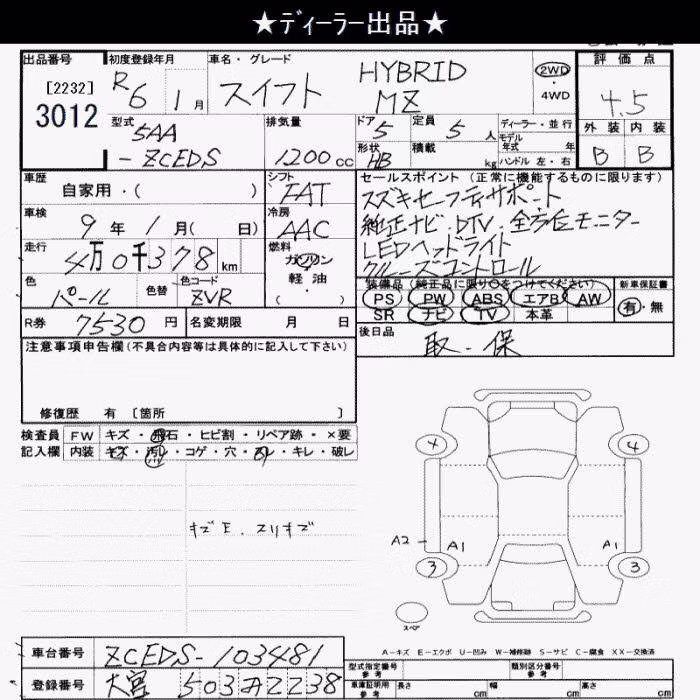 ★ディーラー出品★
出品番号
[2232]
3012
初度登録年月
R6 1月
車名・グレード
スイフト HYBRID MZ
2WD
・
4WD
評価点
4.5
外装 内装
B B
型式
5AA
-ZCEDS
排気量
1200cc
ドア 5
定員 5人
ディーラー・並行
モデル
年式 年
形状 HB
積載 kg
ハンドル 左・右
車歴
自家用・( )
シフト
FAT
セールスポイント（正常に機能するものに限ります）
スズキセーフティサポート
純正ナビ．DTV．全方位モニター
LEDヘッドライト
クルーズコントロール
車検
9年 1月( 日)
冷房
AAC
走行
4万0千378km
燃料
ガソリン
軽・油
( )
色
パール
色替
色コード
ZVR
装備品（純正品に限り○をつけてください）
PS PW ABS エアB AW
SR ナビ TV 本革
新車保証書
有・無
R券 7530円
名変期限 月 日
後日品
取．保
注意事項申告欄(不具合内容等は具体的に記入して下さい)
修復歴 有〔箇所 〕
検査員 FW キズ・飛石・ヒビ割・リペア跡・×要
記入欄 内装 キズ・汚レ・コゲ・穴・スレ・キレ・破レ
キズE．スリキズ
4
A2 A1 A1
3 3
スペア
A-キズ E-エクボ U-凹み W-補修跡 S-サビ C-腐食 XX-交換済
車台番号 ZCEDS-103481
登録番号 大宮 503 2238
型式指定番号
参考
類別区分番号
参考
車庫証明用
参考
長さ cm 幅 cm 高さ cm